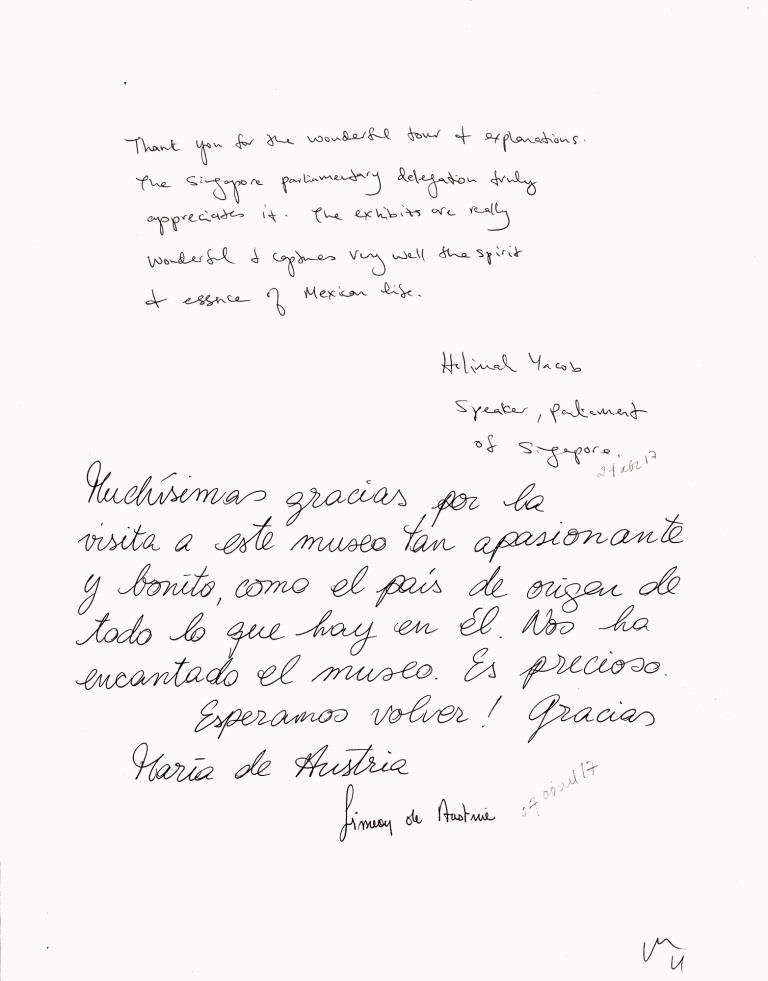 Thank you for the wonderful tour & explanations.
The Singapore parliamentary delegation truly
appreciates it. The exhibits are really
wonderful & captures very well the spirit
& essence of Mexican life.
Halimah Yacob
Speaker, parliament
of Singapore.
Muchísimas gracias por la
visita a este museo tan apasionante
y bonito, como el país de origen de
todo lo que hay en él. Nos ha
encantado el museo. Es precioso.
Esperamos volver! Gracias
María de Austria
Simeon de Austria
27 abril 17